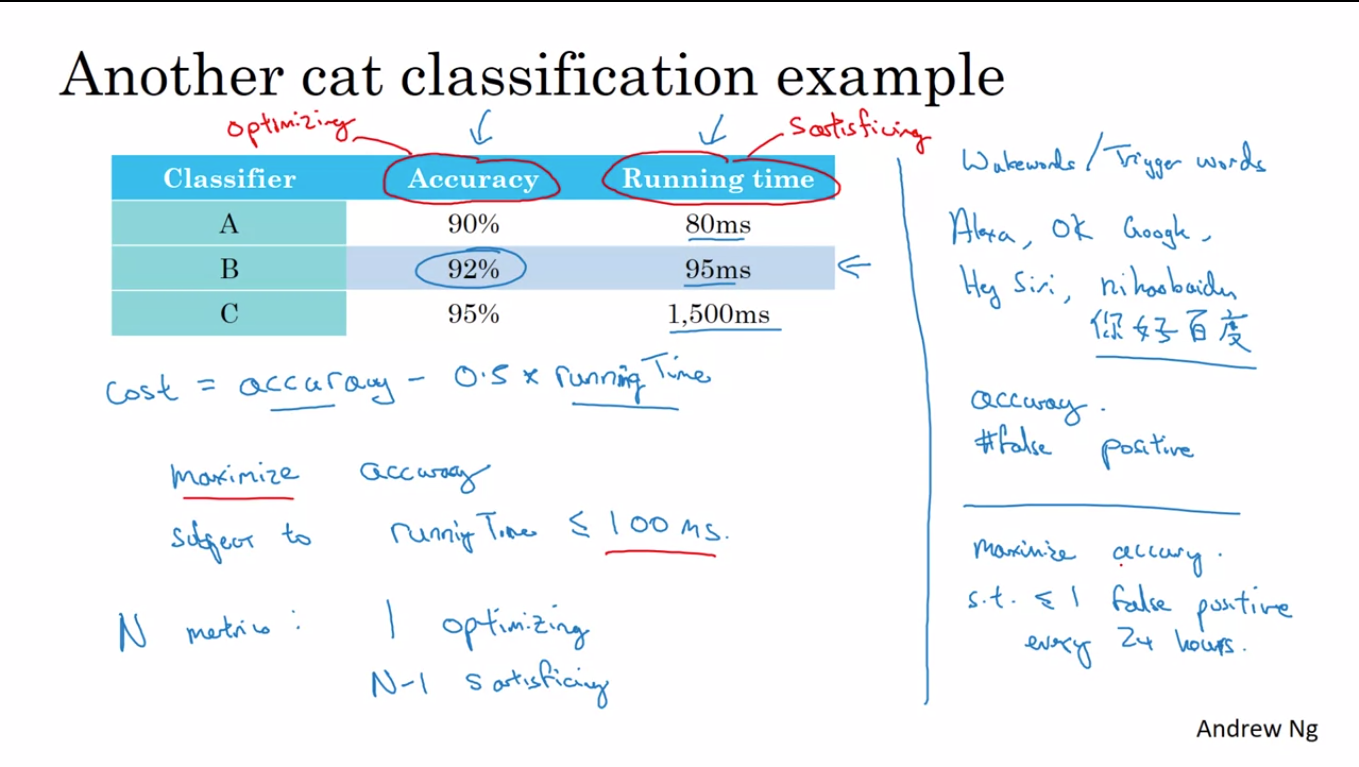 Another cat classification example
optimizing
satisficing
Classifier Accuracy Running time
A 90% 80ms
B 92% 95ms
C 95% 1,500ms
cost = accuracy - 0.5 x runningTime
maximize accuracy
subject to runningTime ≤ 100 ms.
N metrics: 1 optimizing
N-1 satisficing
Wakewords / Trigger words
Alexa, OK Google,
Hey Siri, nihaobaidu
你好百度
accuracy.
#false positive
maximize accuracy.
s.t. ≤ 1 false positive
every 24 hours.
Andrew Ng